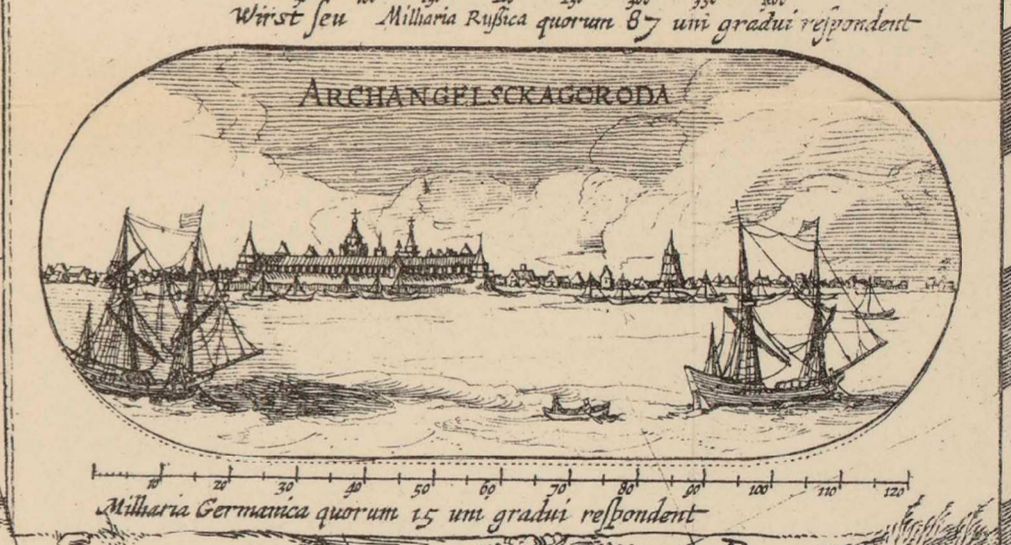 Wirst seu Milliaria Russica quorum 87 uni gradui respondent
ARCHANGELSCKAGORODA
10 20 30 40 50 60 70 80 90 100 110 120
Milliaria Germanica quorum 15 uni gradui respondent